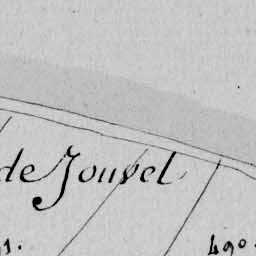 de Jouvel
91.
490.